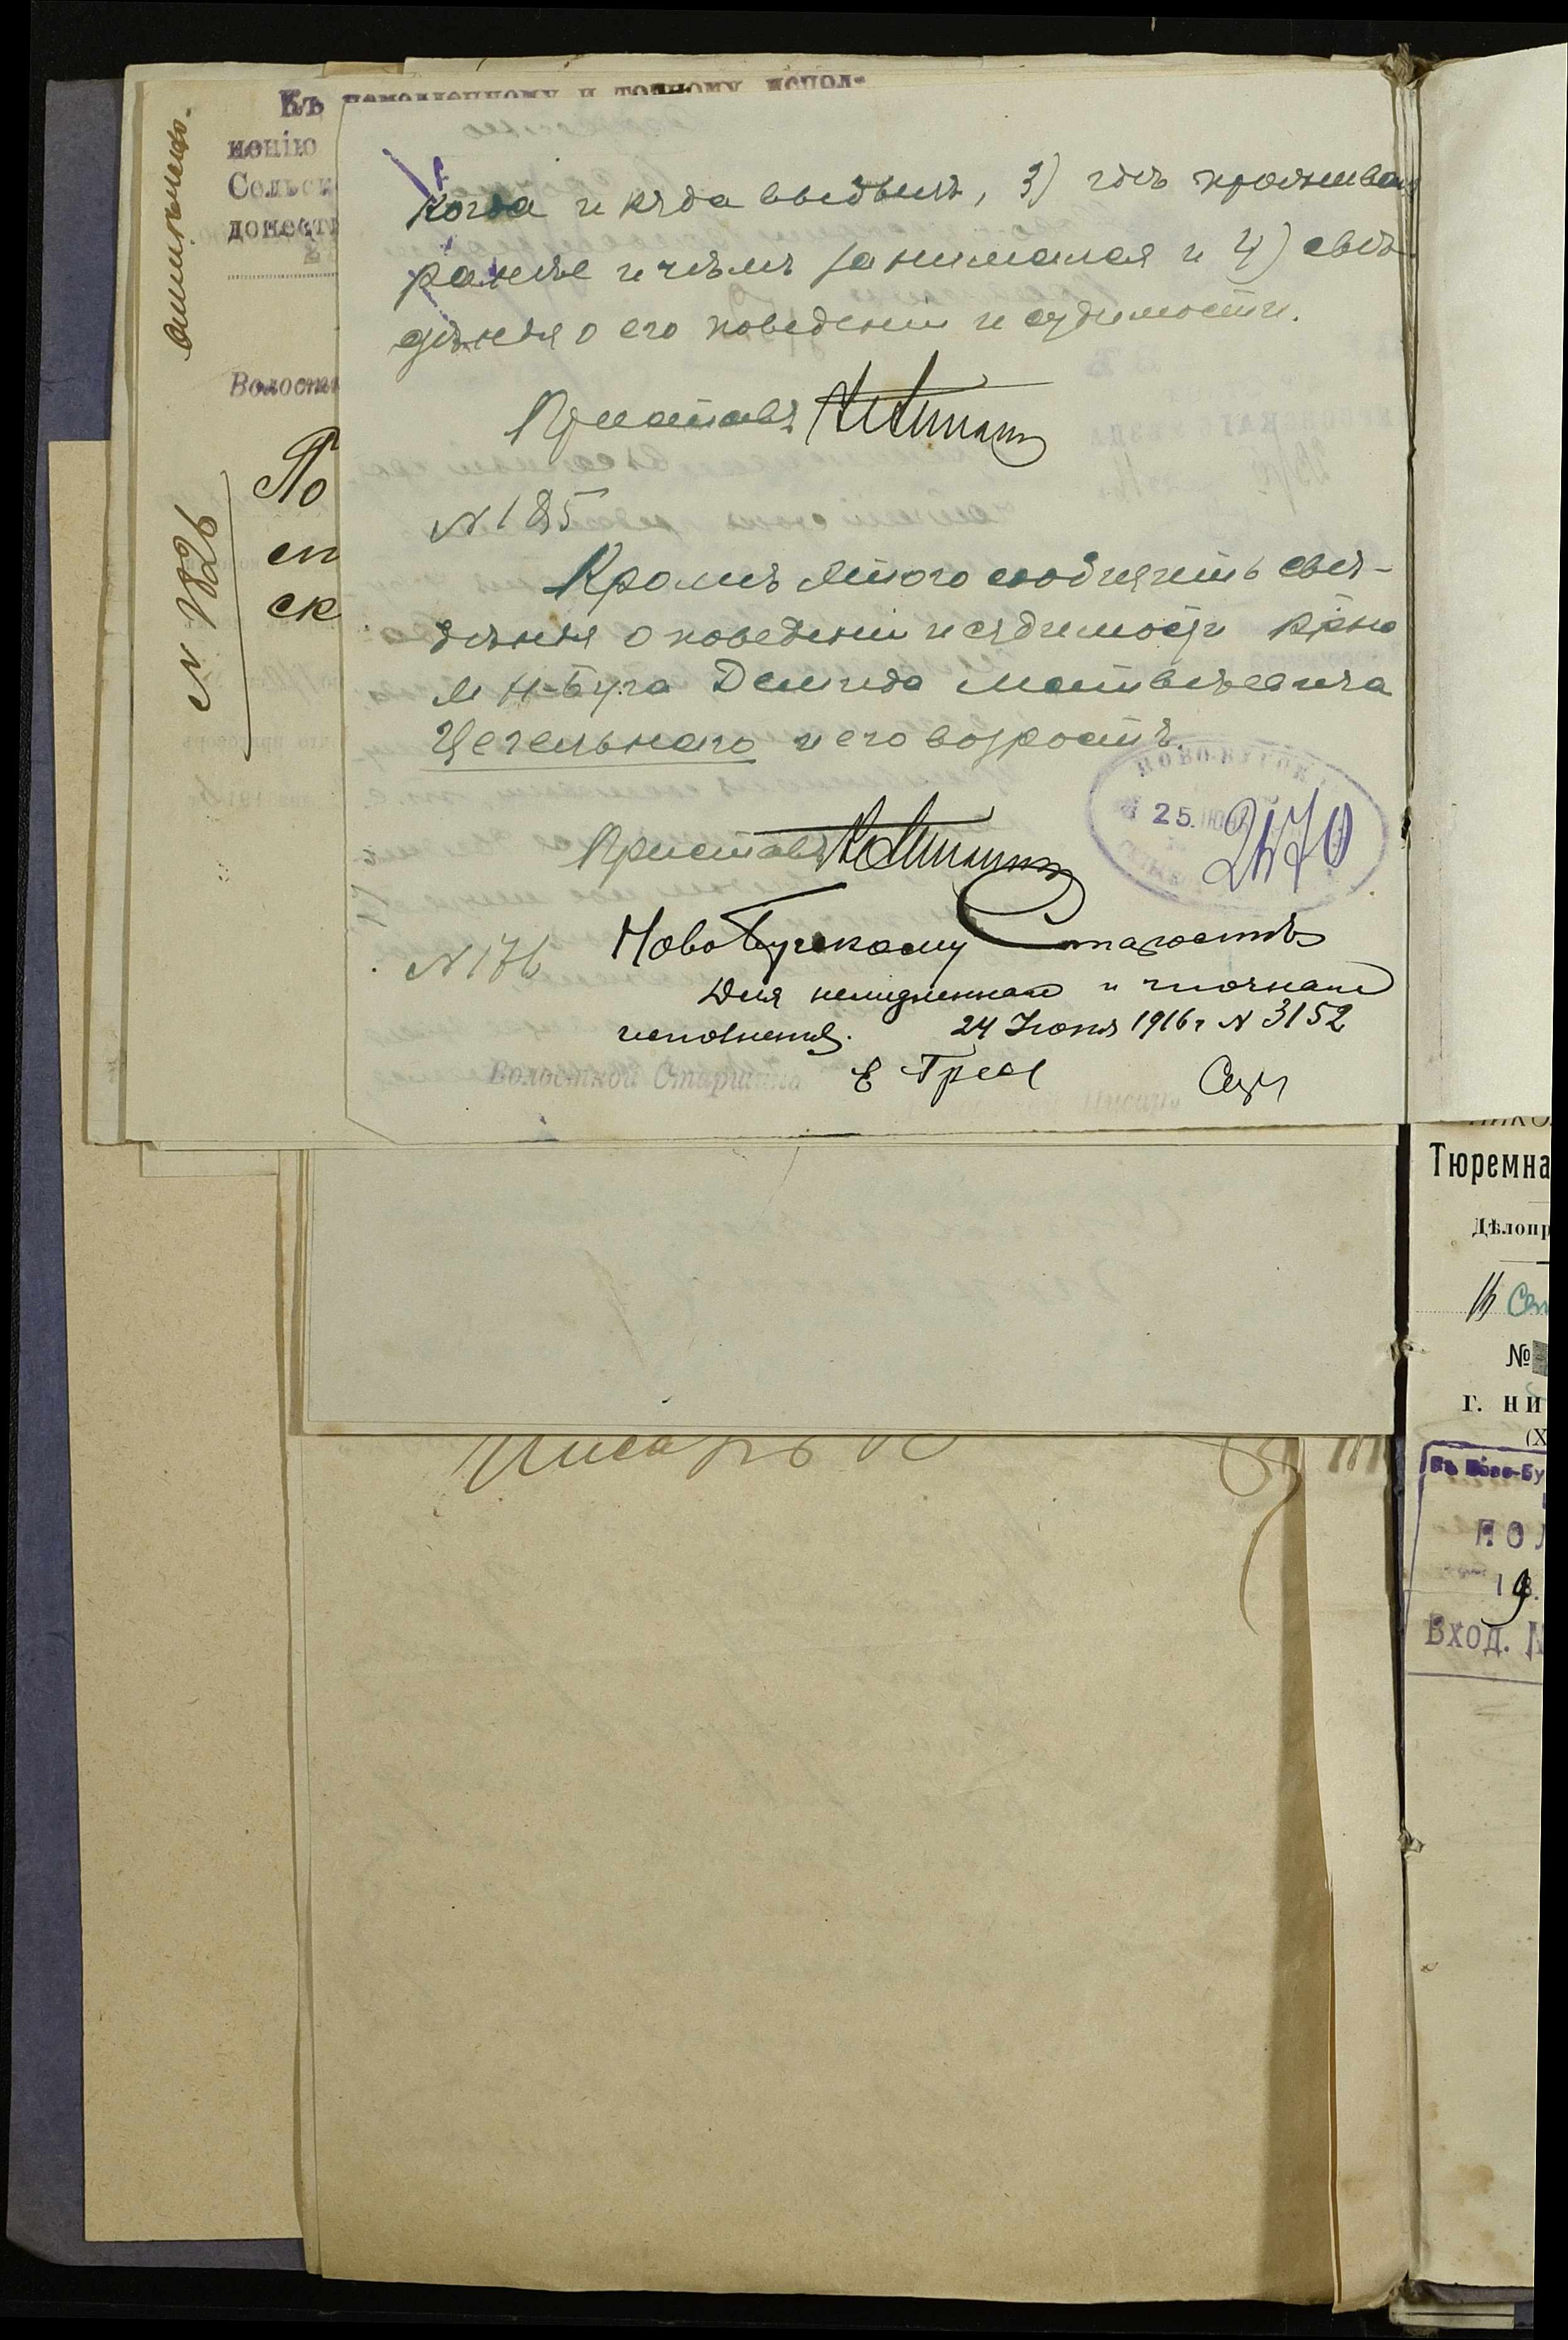 Къ немедленному и точному испол-
ненію
Сельск
донести
Волостн
№ 1826
По
сп
ск
когда и куда выбылъ, 3) гдѣ проживал
ранѣе и чѣмъ занимался и 4) свѣ-
дѣнія о его поведеніи и судимости.
Приставъ
№ 185
Кромѣ этого сообщить свѣ-
дѣнія о поведеніи и судимости кр-на
м Н-Буга Демида Матвѣевича
Цегельнаго и его возрастъ.
Приставъ
25. ІЮН
2470
№ 176
НовоБугскому Старостѣ
Для немедленнаго и точнаго
исполненія. 24 Іюня 1916 г № 3152
Волостной Старшина
Писарь
Тюремна
Дѣлопр
№
г. НИ
(Х
Въ Ново-Бу
ПОЛ
Вход. №